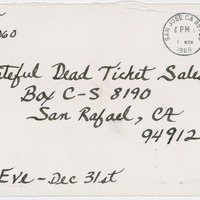 060
SAN JOSE CA
6 PM
1 NOV
1989
teful Dead Ticket Sale
Box C-S 8190
San Rafael, CA
9491
Eve - Dec 31st